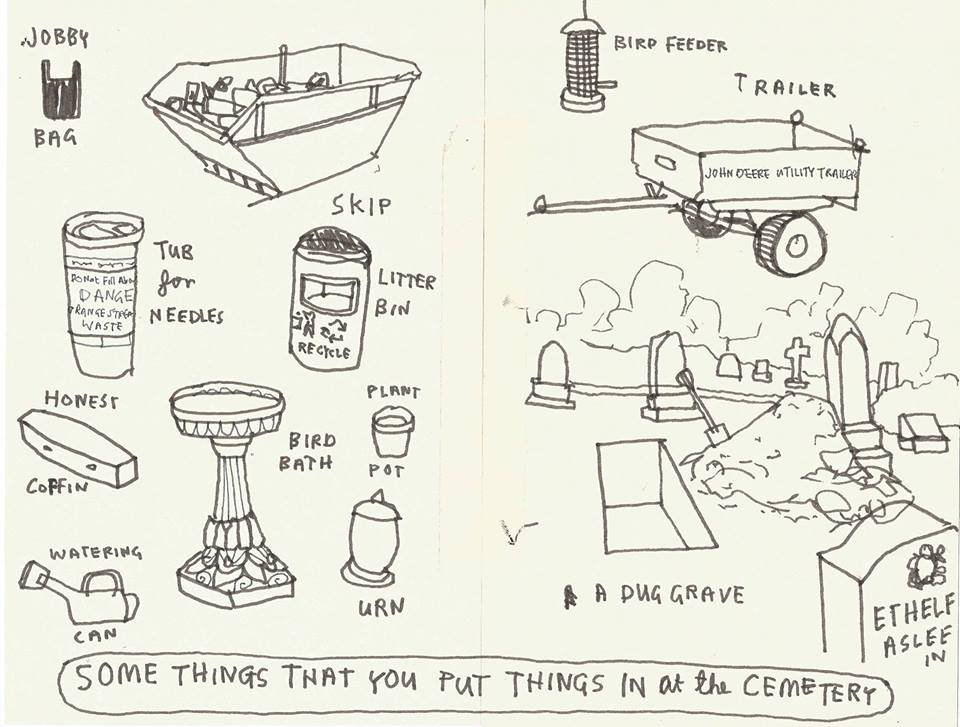 JOBBY
BAG
SKIP
BIRD FEEDER
TRAILER
JOHN DEERE UTILITY TRAILER
TUB
for
NEEDLES
DO NOT FILL ABO
DANGE
WASTE
LITTER
BIN
RECYCLE
HONEST
COFFIN
BIRD
BATH
PLANT
POT
WATERING
CAN
URN
A DUG GRAVE
ETHELF
ASLEE
IN
SOME THINGS THAT YOU PUT THINGS IN at the CEMETERY